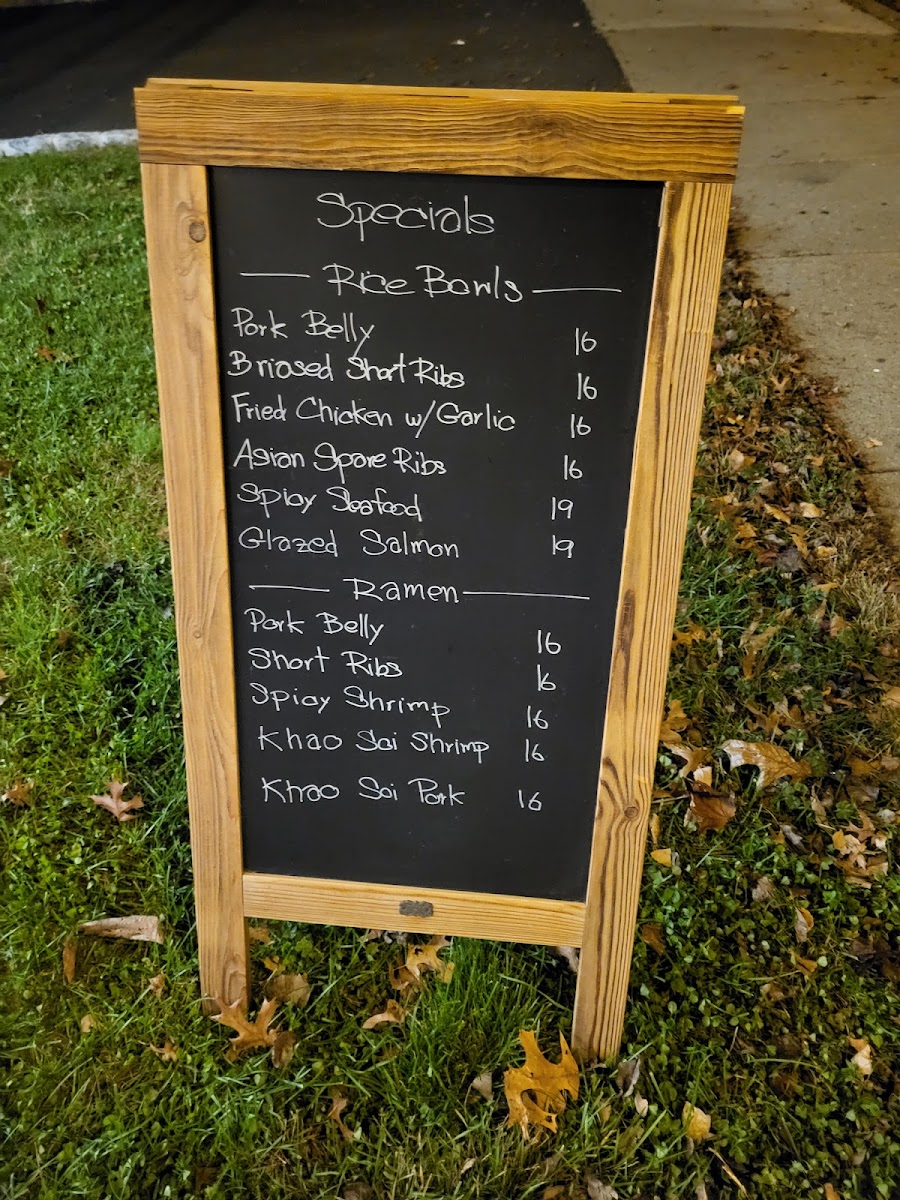 Specials
Rice Bowls
Pork Belly 16
Briased Short Ribs 16
Fried Chicken w/Garlic 16
Asian Spare Ribs 16
Spicy Seafood 19
Glazed Salmon 19
Ramen
Pork Belly 16
Short Ribs 16
Spicy Shrimp 16
Khao Soi Shrimp 16
Khao Soi Pork 16